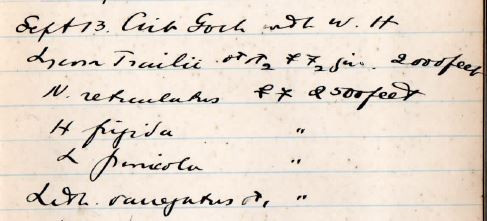 Sept 13. Crib Goch with W. H
Traillii ♂♂2 ♀♀2 juv. 2000 feet
N. reticulatus ♀♀ 2500 feet
H frigida "
L "
Lith. variegatus ♂, "